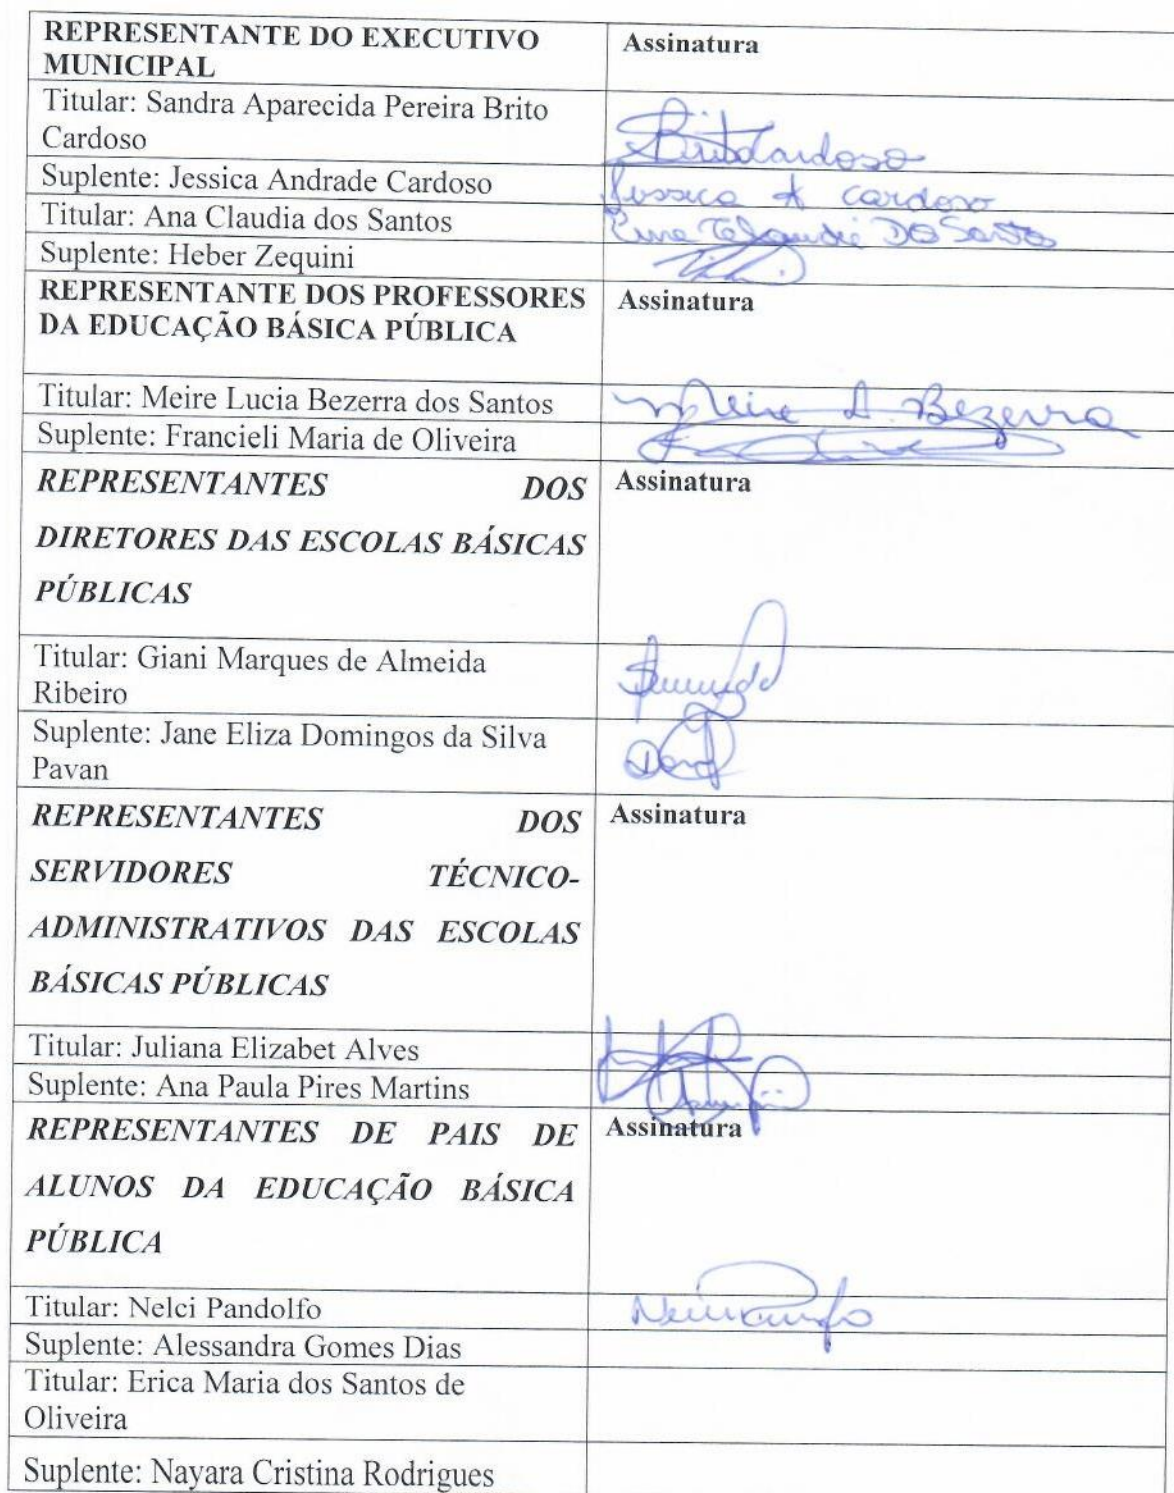 REPRESENTANTE DO EXECUTIVO Assinatura
MUNICIPAL
Titular: Sandra Aparecida Pereira Brito
Cardoso
BritoCardoso
Suplente: Jessica Andrade Cardoso Jessica A Cardoso
Titular: Ana Claudia dos Santos Ana Claudia Dos Santos
Suplente: Heber Zequini
REPRESENTANTE DOS PROFESSORES Assinatura
DA EDUCAÇÃO BÁSICA PÚBLICA
Titular: Meire Lucia Bezerra dos Santos Meire L. Bezerra
Suplente: Francieli Maria de Oliveira
REPRESENTANTES DOS Assinatura
DIRETORES DAS ESCOLAS BÁSICAS
PÚBLICAS
Titular: Giani Marques de Almeida
Ribeiro
Suplente: Jane Eliza Domingos da Silva
Pavan
REPRESENTANTES DOS Assinatura
SERVIDORES TÉCNICO-
ADMINISTRATIVOS DAS ESCOLAS
BÁSICAS PÚBLICAS
Titular: Juliana Elizabet Alves
Suplente: Ana Paula Pires Martins
REPRESENTANTES DE PAIS DE Assinatura
ALUNOS DA EDUCAÇÃO BÁSICA
PÚBLICA
Titular: Nelci Pandolfo
Suplente: Alessandra Gomes Dias
Titular: Erica Maria dos Santos de
Oliveira
Suplente: Nayara Cristina Rodrigues